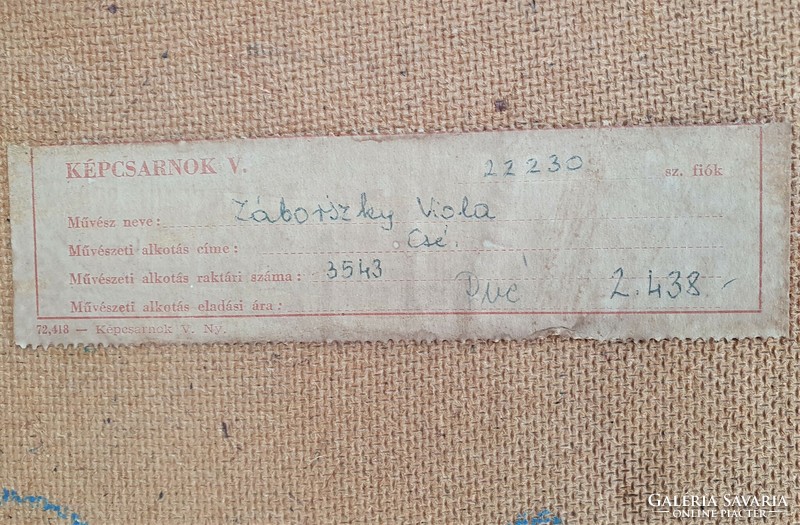 KÉPCSARNOK V. 22230 sz. fiók
Művész neve: Záborszky Viola
Művészeti alkotás címe: Csé.
Művészeti alkotás raktári száma: 3543
Művészeti alkotás eladási ára: 2.438.-
72,418 — Képcsarnok V. Ny.
GALERIA SAVARIA
ONLINE PIACTÉR